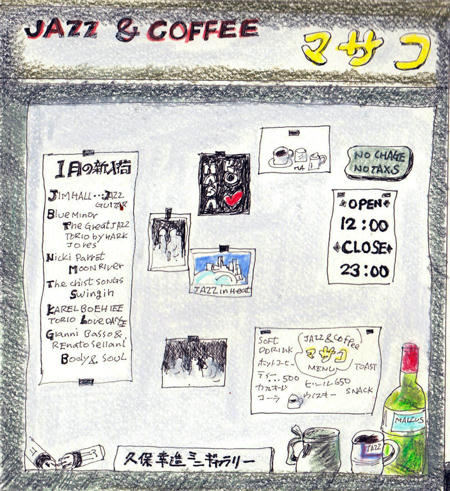 JAZZ & COFFEE
マサコ
1月の新入荷
JIMHALL-JAZZ
GUITAR
BLUE MINOR
THE GREAT JAZZ
TORIO BY HARK
JOVES
NICKI PARRET
MOON RIVER
THE CHIST SONGS
SWINGIN
KAREL BOEHLEE
TORIO LOVE DANCE
GIANNI BASSO &
RENATO SELLANI
BODY & SOUL
NO CHAGE
NO TAXS
OPEN
12:00
CLOSE
23:00
JAZZ in Heat
SOFT
DDRINK
JAZZ & COFFEE
マサコ
MENU
TOAST
SNACK
ホットコーヒー
ティー…500
ビール650
カフェオーレ
コーラ
ウイスキー
JAZZ
久保幸造ミニギャラリー